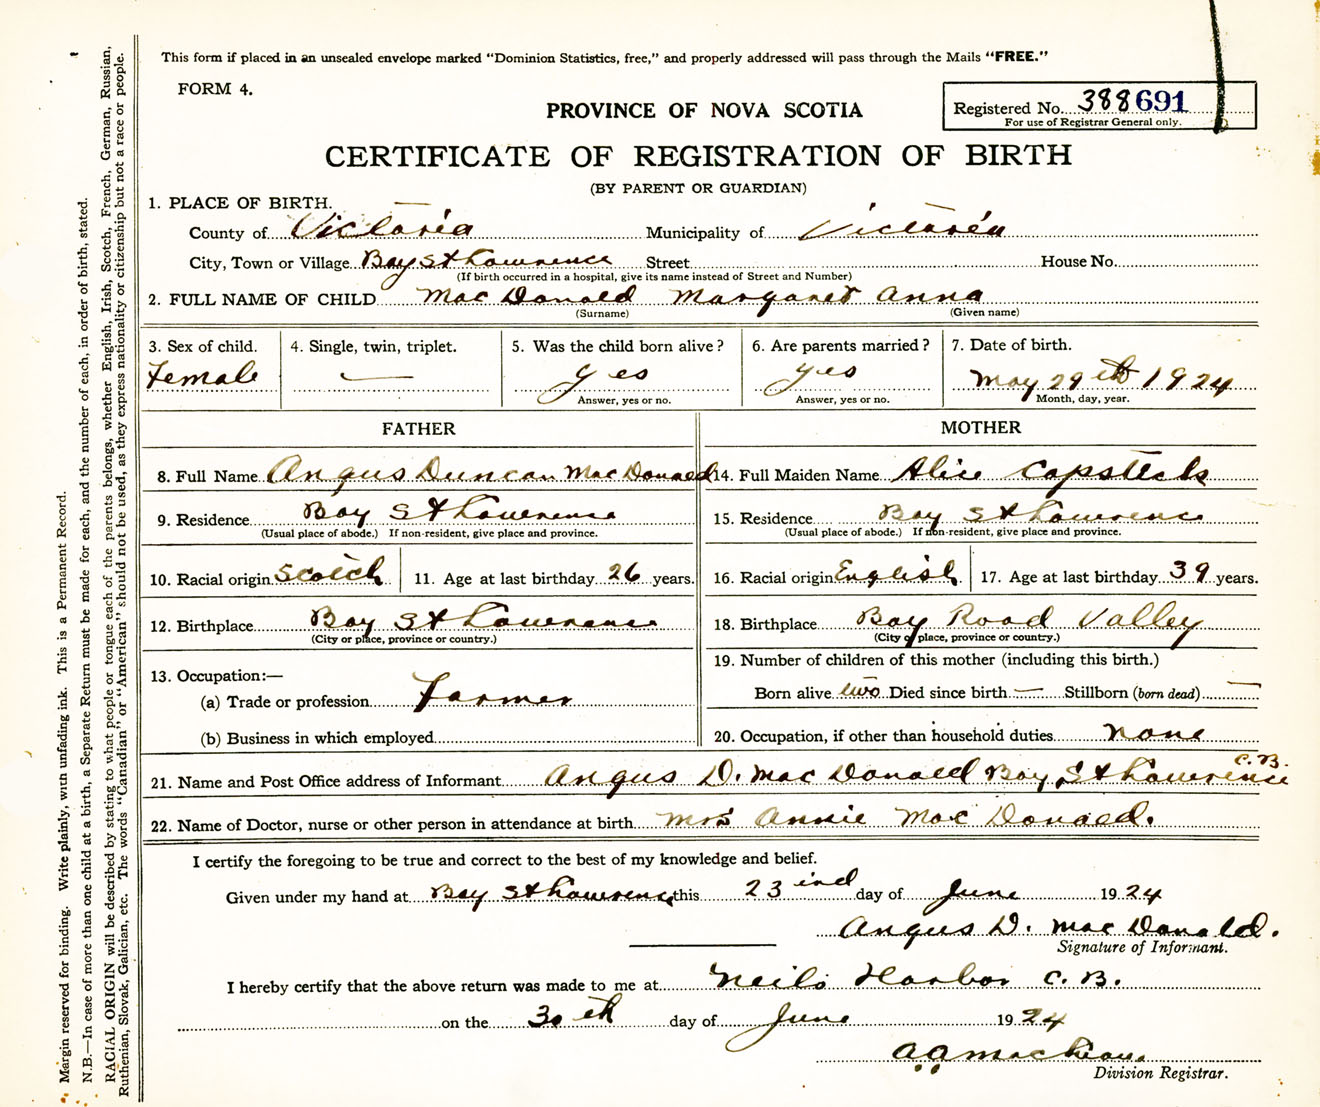 This form if placed in an unsealed envelope marked “Dominion Statistics, free,” and properly addressed will pass through the Mails “FREE.”
FORM 4.
Registered No. 388691
For use of Registrar General only.
PROVINCE OF NOVA SCOTIA
CERTIFICATE OF REGISTRATION OF BIRTH
(BY PARENT OR GUARDIAN)
1. PLACE OF BIRTH.
County of Victoria Municipality of Victoria
City, Town or Village Bay St Lawrence Street House No.
(If birth occurred in a hospital, give its name instead of Street and Number)
2. FULL NAME OF CHILD Mac Donald Margaret Anna
(Surname) (Given name)
3. Sex of child. 4. Single, twin, triplet. 5. Was the child born alive? 6. Are parents married? 7. Date of birth.
Female — yes yes May 29th 1924
Answer, yes or no. Answer, yes or no. Month, day, year.
FATHER MOTHER
8. Full Name Angus Duncan Mac Donald 14. Full Maiden Name Alice Capstick
9. Residence Bay St Lawrence 15. Residence Bay St Lawrence
(Usual place of abode.) If non-resident, give place and province. (Usual place of abode.) If non-resident, give place and province.
10. Racial origin Scotch 11. Age at last birthday 26 years. 16. Racial origin English 17. Age at last birthday 39 years.
12. Birthplace Bay St Lawrence 18. Birthplace Bay Road Valley
(City or place, province or country.) (City or place, province or country.)
13. Occupation:— 19. Number of children of this mother (including this birth.)
(a) Trade or profession Farmer Born alive two Died since birth — Stillborn (born dead) —
(b) Business in which employed 20. Occupation, if other than household duties none
21. Name and Post Office address of Informant Angus D. Mac Donald Bay St Lawrence C. B.
22. Name of Doctor, nurse or other person in attendance at birth Mrs Annie Mac Donald.
I certify the foregoing to be true and correct to the best of my knowledge and belief.
Given under my hand at Bay St Lawrence this 23 ind day of June 1924
Angus D. Mac Donald.
Signature of Informant.
I hereby certify that the above return was made to me at Neils Harbor C. B.
on the 30th day of June 1924
Division Registrar.
Margin reserved for binding. Write plainly, with unfading ink. This is a Permanent Record.
N.B.—In case of more than one child at a birth, a Separate Return must be made for each, and the number of each, in order of birth, stated.
RACIAL ORIGIN will be described by stating to what people or tongue each of the parents belongs, whether English, Irish, Scotch, French, German, Russian,
Ruthenian, Slovak, Galician, etc. The words “Canadian” or “American” should not be used, as they express nationality or citizenship but not a race or people.